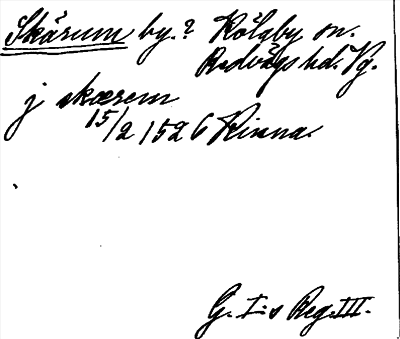 Skärum by.? Kölaby sn.
Redvägs hd. Vg.
j skærem
15/2 1526 Kinna.
G. I:s Reg. III.